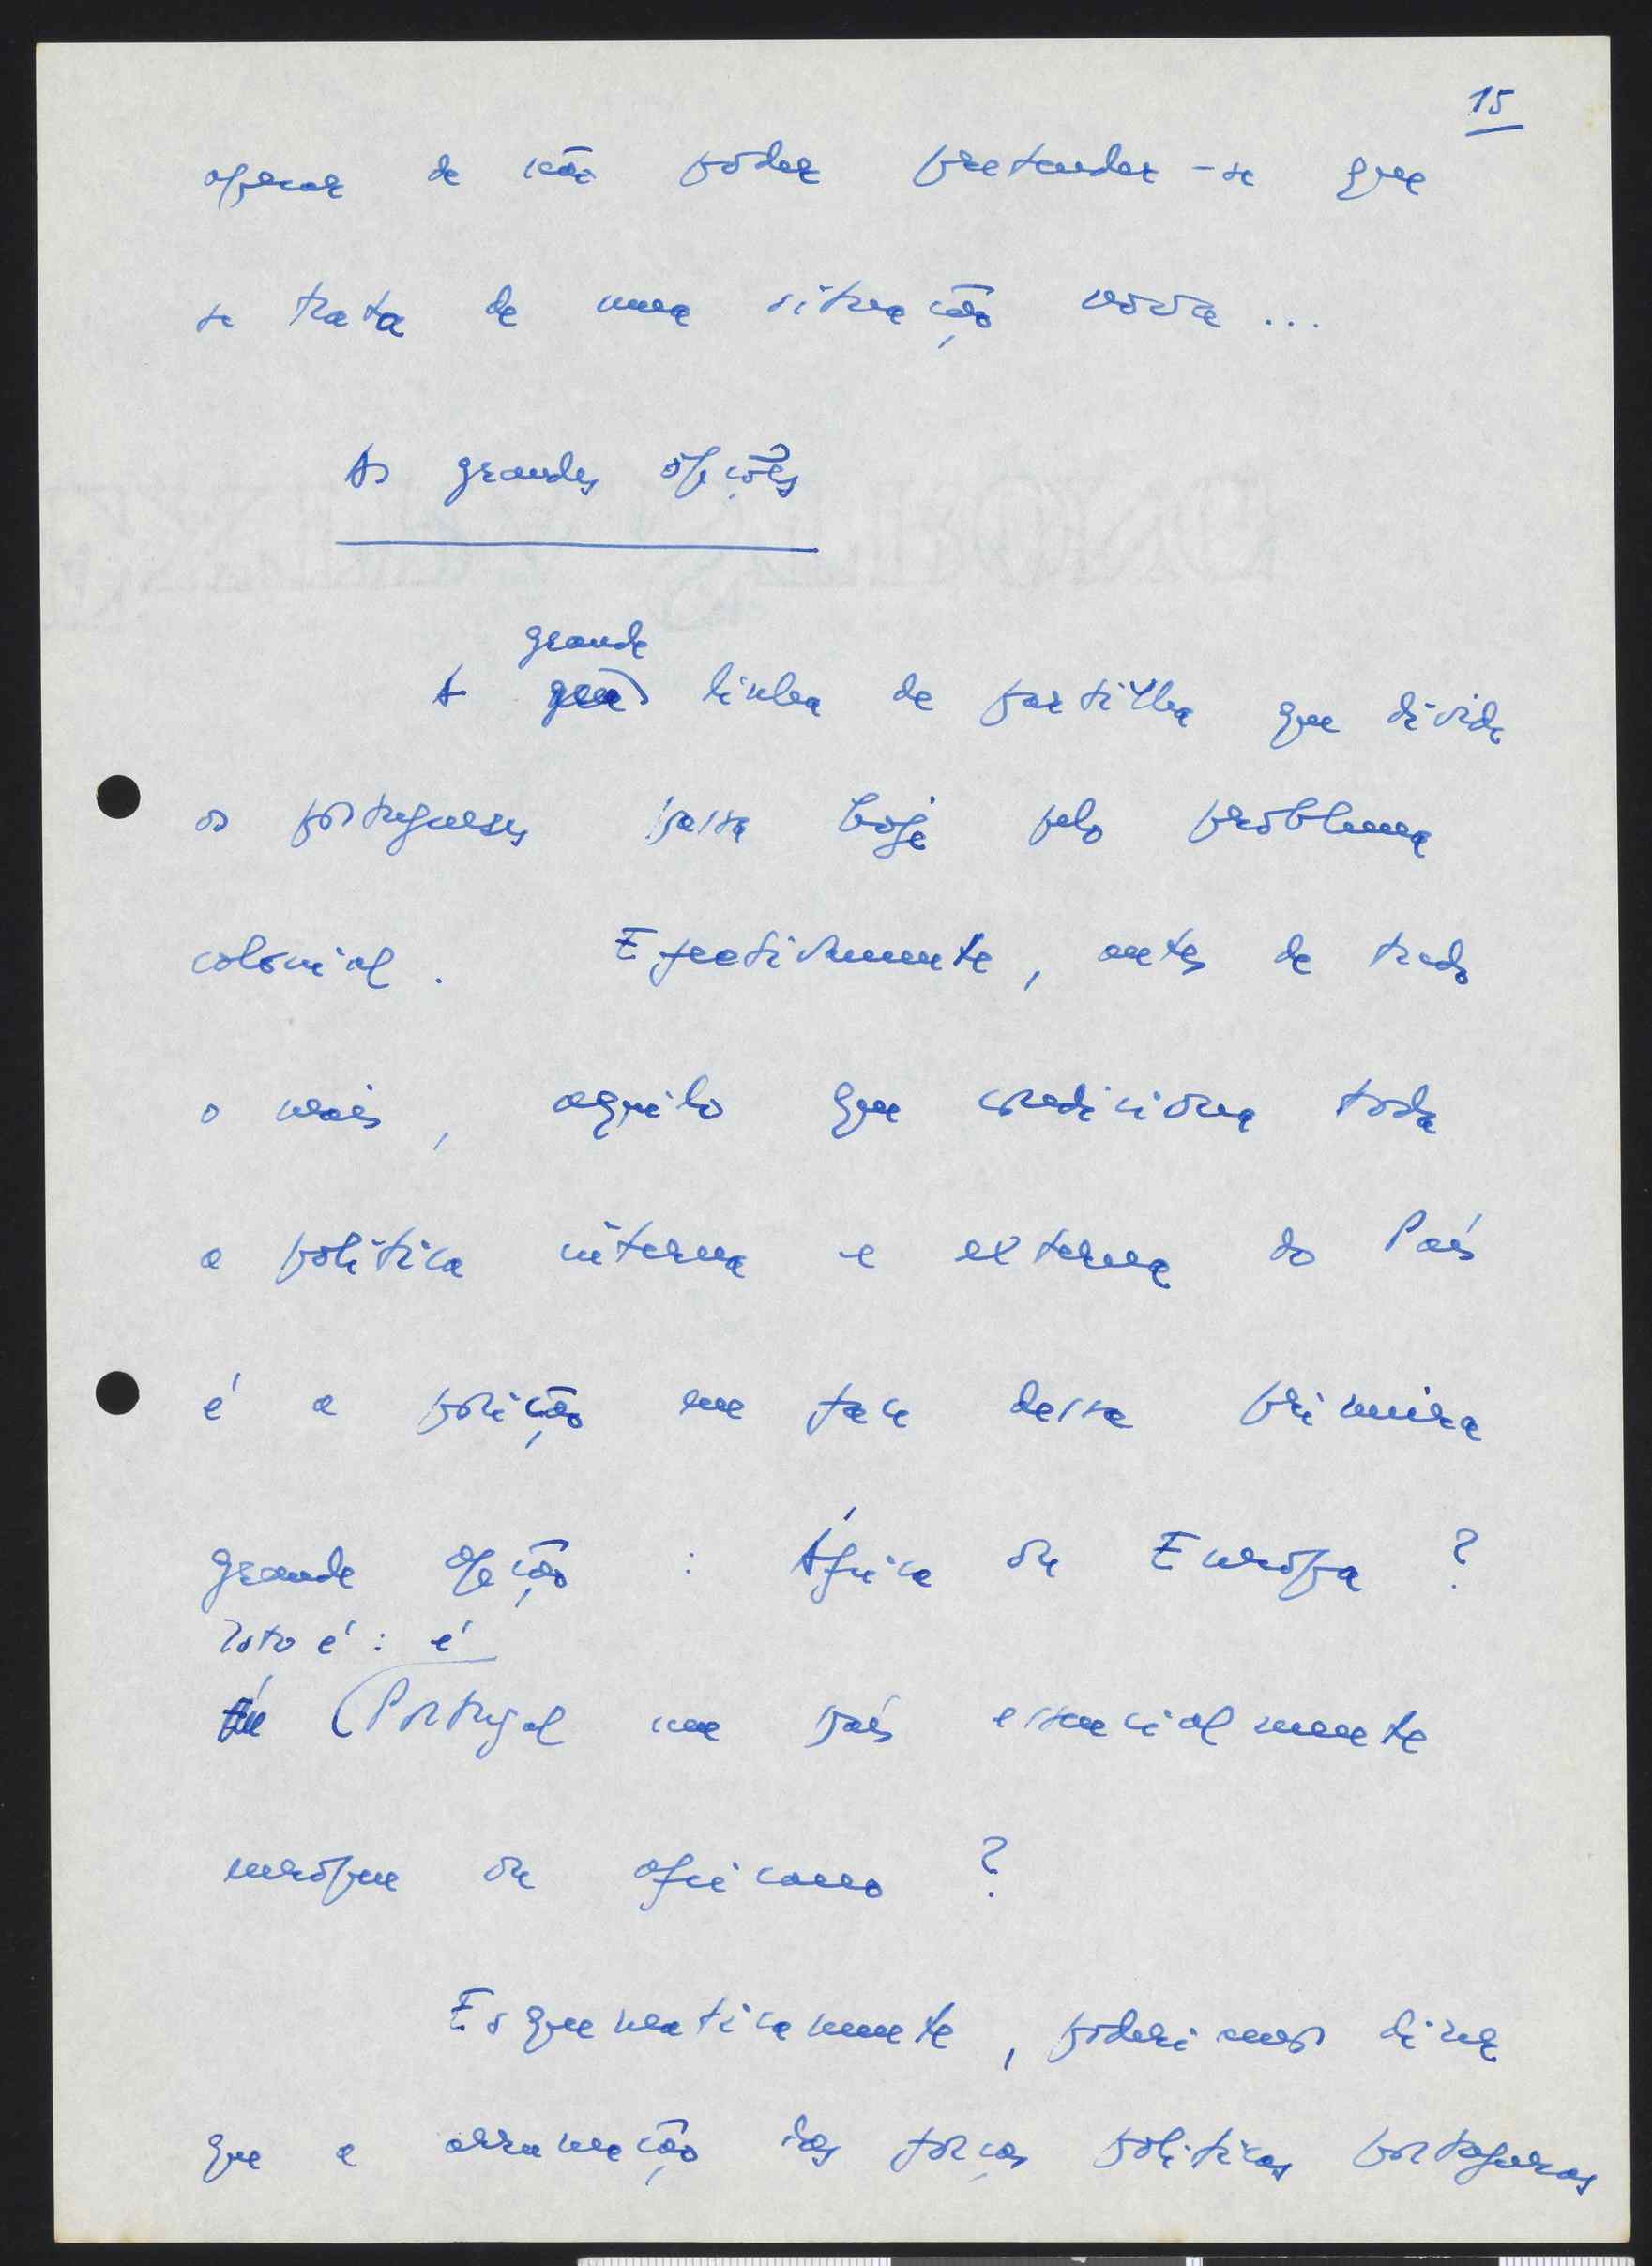 15
apesar de não poder pretender-se que
se trata de uma situação nova...
As grandes opções
grande
A linha de partilha que divide
os portugueses passa hoje pelo problema
colonial. Efectivamente, antes de tudo
o mais, aquilo que condiciona toda
a política interna e externa do País
é a posição em face dessa primeira
grande opção: África ou Europa?
Isto é: é
Portugal um país essencialmente
europeu ou africano?
Esquematicamente, poderíamos dizer
que a arrumação das forças políticas portuguesas